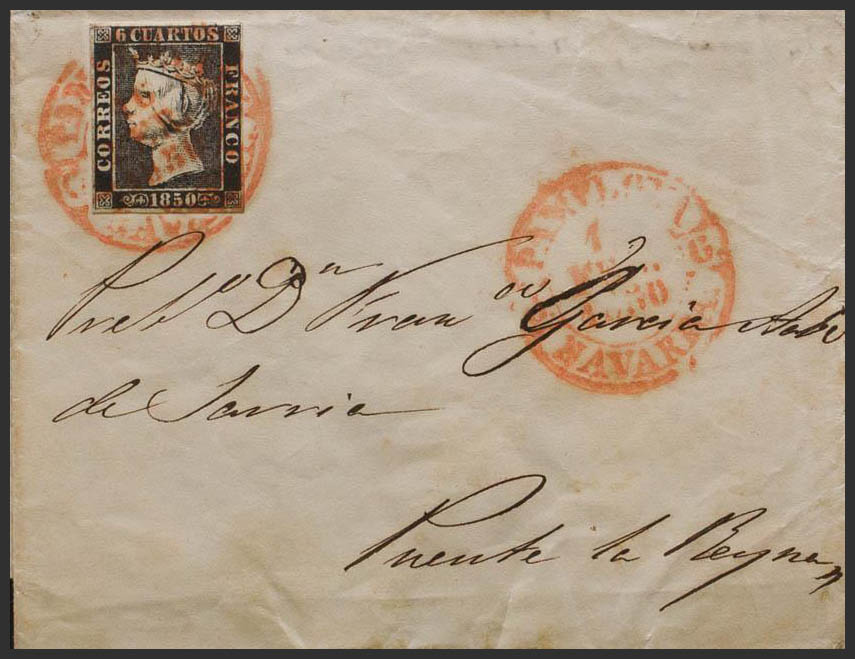 6 CUARTOS
CORREOS
FRANCO
1850
PAMPLONA
1
NAVARRA
Preb.º D.n Fran.co García Abbe
de Sarria
Puente la Reyna